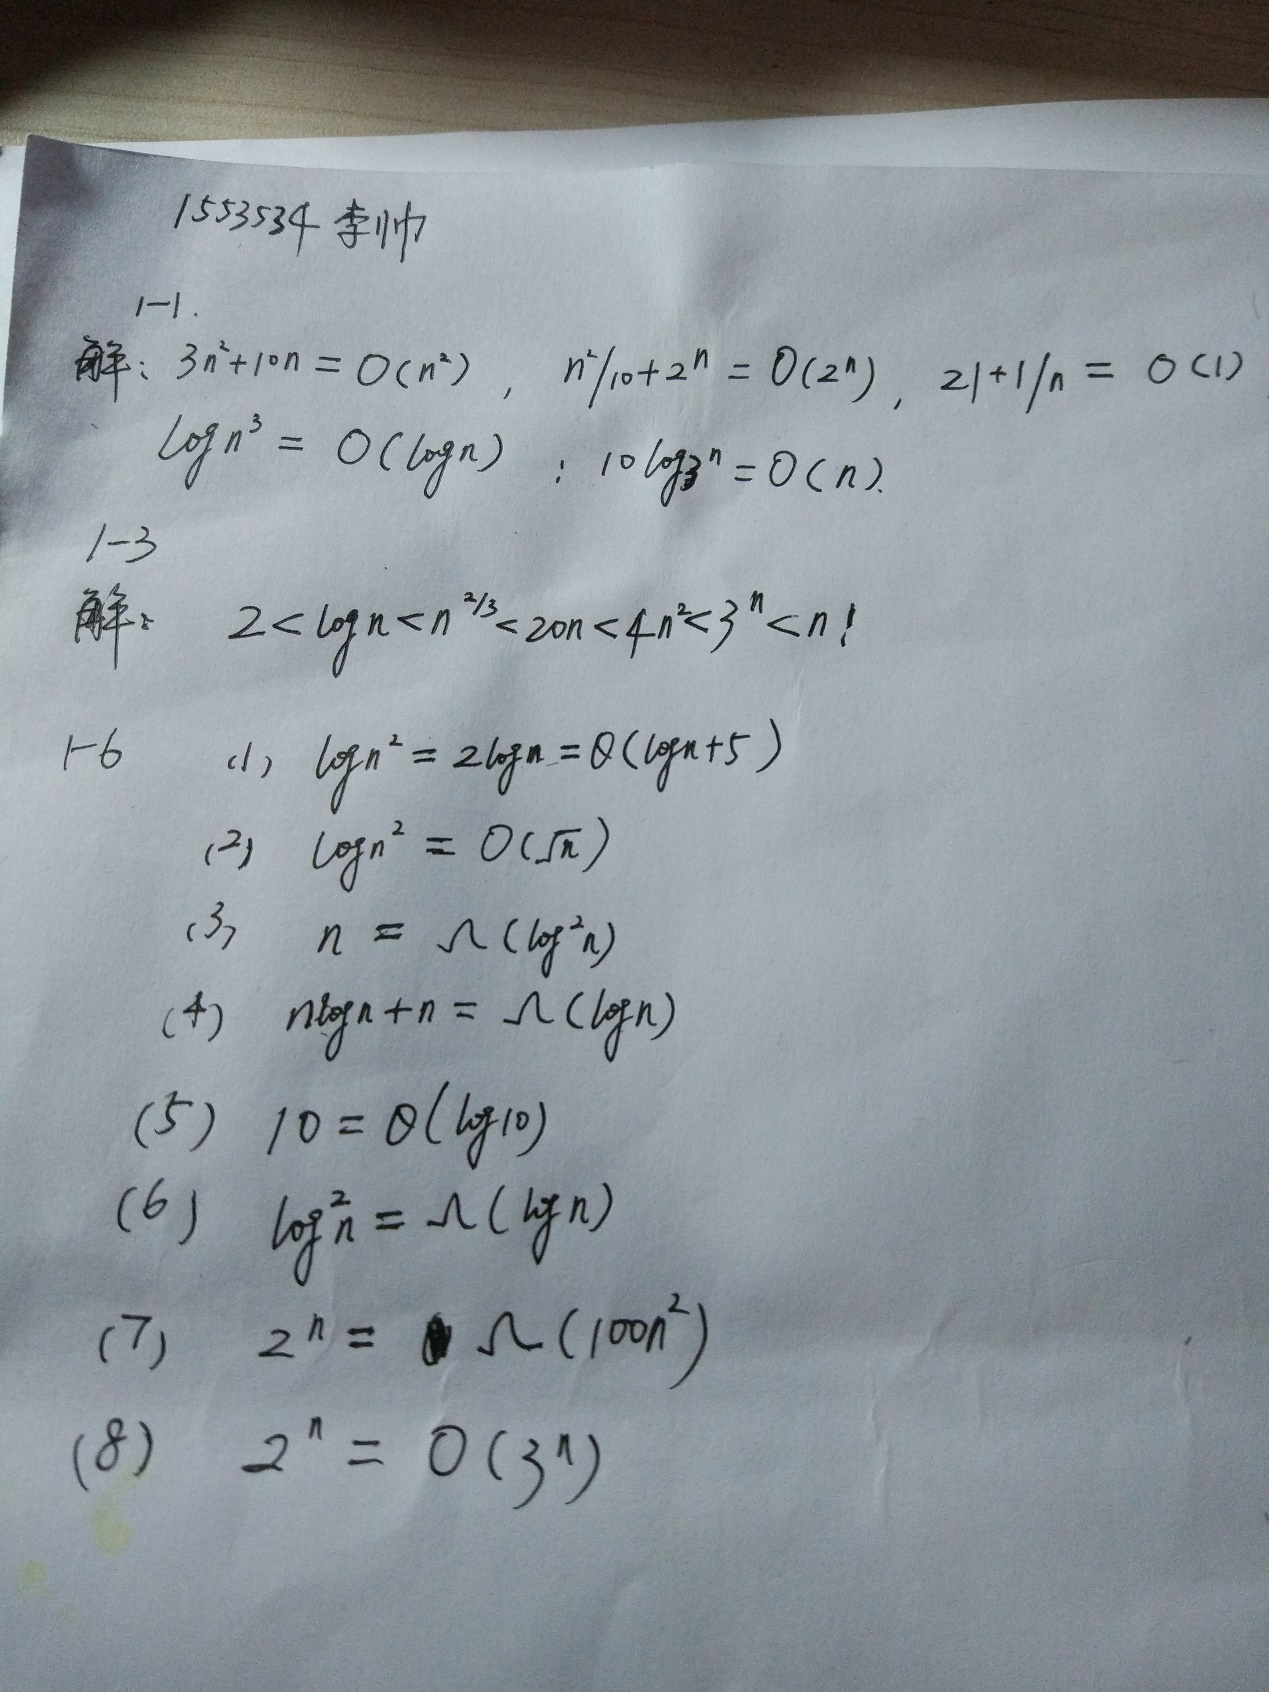 1553534 李帅
1-1.
解: 3n²+10n = O(n²), n²/10+2ⁿ = O(2ⁿ), 21+1/n = O(1)
logn³ = O(logn) ; 10log3ⁿ = O(n).
1-3
解: 2<logn<n^{2/3}<20n<4n²<3ⁿ<n!
1-6 (1) logn² = 2logn = θ(logn+5)
(2) logn² = O(√n)
(3) n = Ω(log²n)
(4) nlogn+n = Ω(logn)
(5) 10 = θ(log10)
(6) log²n = Ω(logn)
(7) 2ⁿ = Ω(100n²)
(8) 2ⁿ = O(3ⁿ)